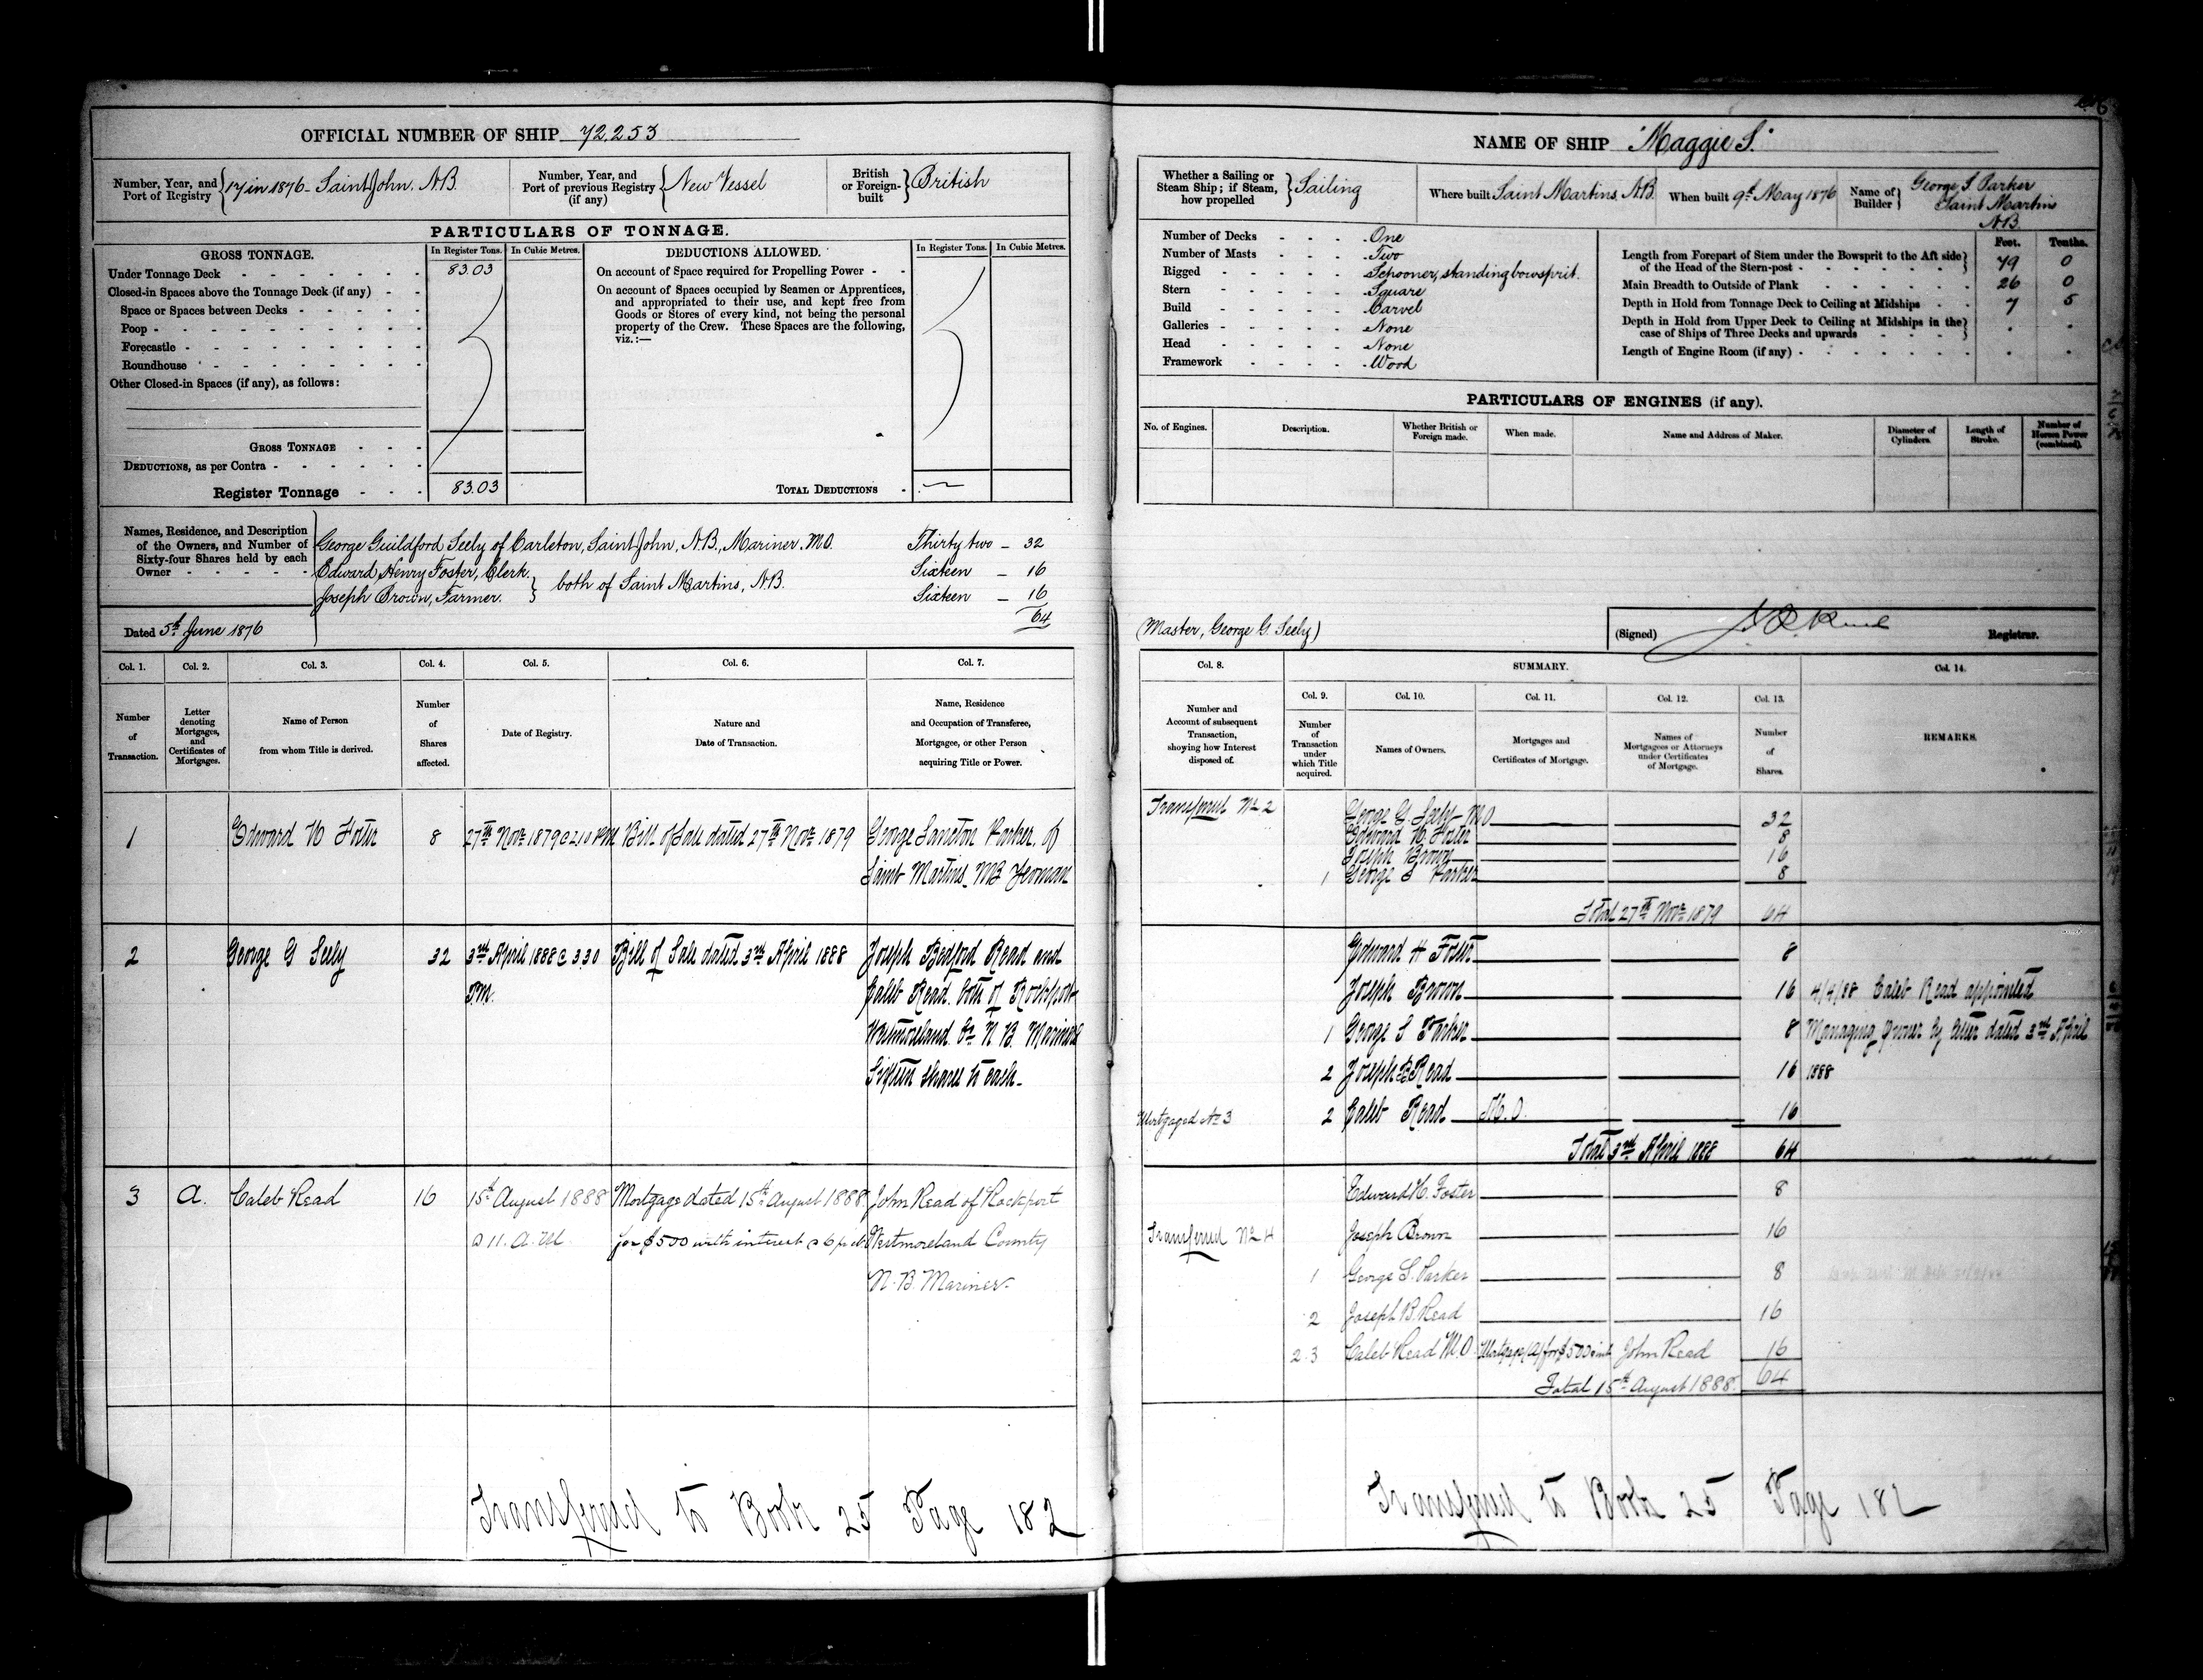 OFFICIAL NUMBER OF SHIP 72,253
Number, Year, and Port of Registry 17 in 1876 Saint John. N.B.
Number, Year, and Port of previous Registry (if any) New Vessel
British or Foreign-built British
PARTICULARS OF TONNAGE.
GROSS TONNAGE. In Register Tons. In Cubic Metres.
Under Tonnage Deck 83.03
Closed-in Spaces above the Tonnage Deck (if any)
Space or Spaces between Decks
Poop
Forecastle
Roundhouse
Other Closed-in Spaces (if any), as follows:
GROSS TONNAGE
DEDUCTIONS, as per Contra
Register Tonnage 83.03
DEDUCTIONS ALLOWED. In Register Tons. In Cubic Metres.
On account of Space required for Propelling Power
On account of Spaces occupied by Seamen or Apprentices,
and appropriated to their use, and kept free from
Goods or Stores of every kind, not being the personal
property of the Crew. These Spaces are the following,
viz.:—
TOTAL DEDUCTIONS
Names, Residence, and Description
of the Owners, and Number of
Sixty-four Shares held by each
Owner
George Guildford Seely of Carleton, Saint John, N.B., Mariner. M.O. Thirty two — 32
Edward Henry Foster, Clerk. Sixteen — 16
Joseph Brown, Farmer. } both of Saint Martins, N.B. Sixteen — 16
64
Dated 5th June 1876
Col. 1. Col. 2. Col. 3. Col. 4. Col. 5. Col. 6. Col. 7.
Number of Transaction.
Letter denoting Mortgages, and Certificates of Mortgages.
Name of Person from whom Title is derived.
Number of Shares affected.
Date of Registry.
Nature and Date of Transaction.
Name, Residence and Occupation of Transferee, Mortgagee, or other Person acquiring Title or Power.
1 Edward H Foster 8 27th Novr 1879 @ 2.10 PM Bill of Sale dated 27th Novr 1879 George Parker, of
Saint Martins NB Yeoman
2 George G Seely 32 3rd April 1888 @ 3 30 Bill of Sale dated 3rd April 1888 Joseph Bedford Read and
P.M. Caleb Read both of Rockport
Westmoreland Co N B. Mariners
Sixteen shares to each
3 A. Caleb Read 16 15th August 1888 Mortgage dated 15th August 1888 John Read of Rockport
@ 11. A.M. for $500 with interest @ 6 p ct Westmoreland County
N.B. Mariner
Transferred to Book 25 Page 182
NAME OF SHIP "Maggie S."
Whether a Sailing or Steam Ship; if Steam, how propelled Sailing
Where built Saint Martins, N.B.
When built 9th May 1876
Name of Builder George S. Parker
Saint Martins
N.B.
Number of Decks One
Number of Masts Two
Rigged Schooner, standing bowsprit.
Stern Square
Build Carvel
Galleries None
Head None
Framework Wood
Feet. Tenths.
Length from Forepart of Stem under the Bowsprit to the Aft side of the Head of the Stern-post 79 0
Main Breadth to Outside of Plank 26 0
Depth in Hold from Tonnage Deck to Ceiling at Midships 7 5
Depth in Hold from Upper Deck to Ceiling at Midships in the case of Ships of Three Decks and upwards
Length of Engine Room (if any)
PARTICULARS OF ENGINES (if any).
No. of Engines. Description. Whether British or Foreign made. When made. Name and Address of Maker. Diameter of Cylinders. Length of Stroke. Number of Horses Power (combined).
(Master, George G. Seely)
(Signed) Registrar.
Col. 8. SUMMARY. Col. 14.
Col. 9. Col. 10. Col. 11. Col. 12. Col. 13.
Number and Account of subsequent Transaction, showing how Interest disposed of.
Number of Transaction under which Title acquired.
Names of Owners.
Mortgages and Certificates of Mortgage.
Names of Mortgagees or Attorneys under Certificates of Mortgage.
Number of Shares.
REMARKS.
Transferred No 2 George G. Seely M.O 32
Edward H. Foster 8
Joseph Brown 16
1 George S Parker 8
Total 27th Novr 1879 64
Edward H Foster 8
Joseph Brown 16 4/4/88 Caleb Read appointed
1 George S Parker 8 Managing Owner by letter dated 3rd April
2 Joseph B Read 16 1888
Mortgaged No 3 2 Caleb Read M.O. 16
Total 3rd April 1888 64
Edward H. Foster 8
Transferred No 4 Joseph Brown 16
1 George S. Parker 8
2 Joseph B. Read 16
2.3 Caleb Read M.O. Mortgage (A) for $500 & int John Read 16
Total 15th August 1888. 64
Transferred to Book 25 Page 182